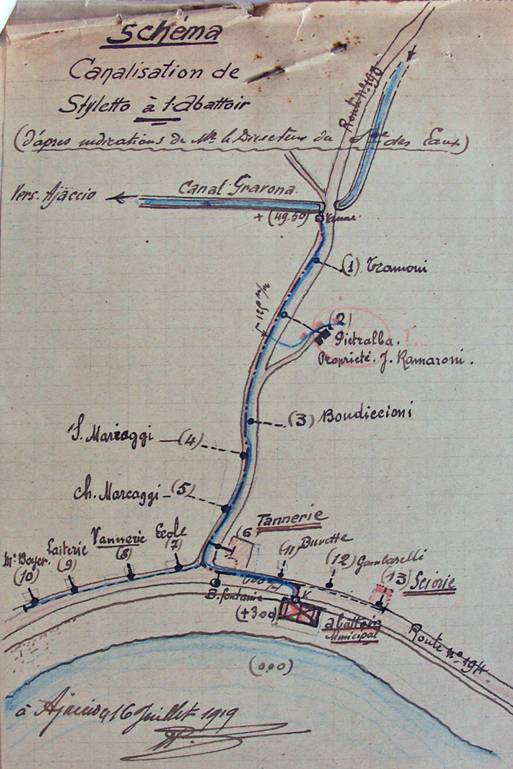 Schéma
Canalisation de
Styletto à l'abattoir
(d'après indications du Mr le Directeur du Sce des Eaux)
Route Nle 193
Vers. Ajaccio
Canal Gravona.
+ (49.50)
Vanne
(1) Tramoni
(2)
Pietralba.
Propriété. J. Ramaroni.
(3) Boudiccioni
S. Marcaggi (4)
Ch. Marcaggi (5)
Tannerie
(6)
Ecole
(7)
Vannerie
(8)
Laiterie
(9)
Boyer.
(10)
(11) Buvette
(12) Gambarelli
(13) Scierie
B. fontaine
(+300)
abattoir
Municipal
Route Nle 194
(0.00)
à Ajaccio, 16 Juillet 1919